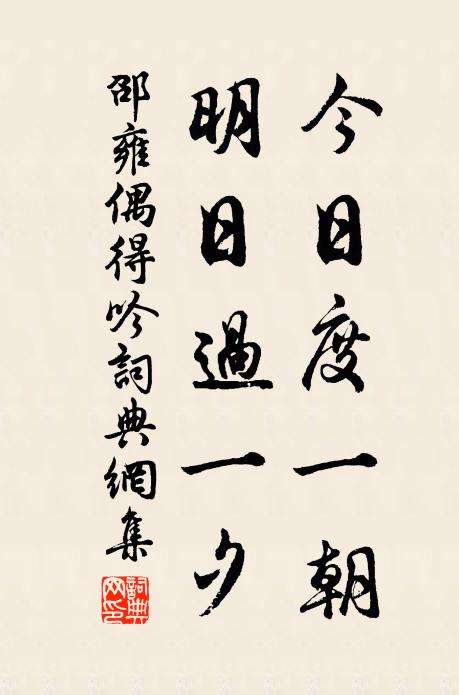 今日度一朝
明日過一夕
邵雍偶得吟詞典網集
詞典
网印